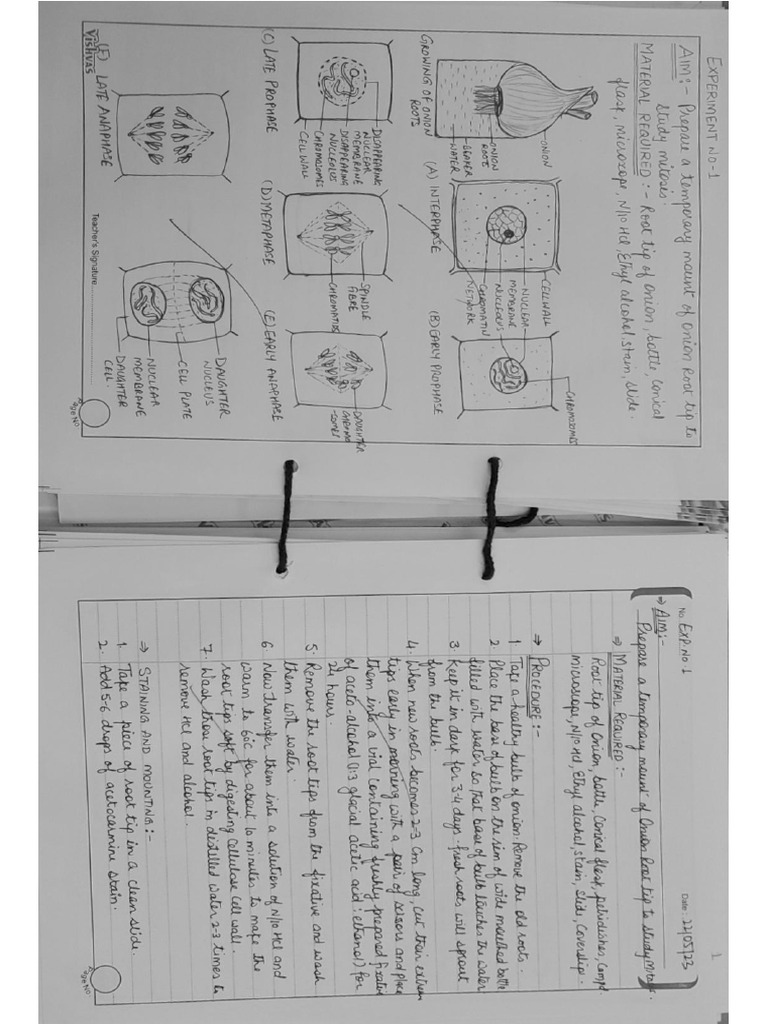 EXPERIMENT NO-1
AIM:- Prepare a temporary mount of onion root tip to
study mitosis.
MATERIAL REQUIRED :- Root tip of onion, bottle, conical
flask, microscope, N/10 Hcl, Ethyl alcohol, stain, slide.
ONION
ONION
ROOT
BEAKER
WATER
GROWING OF ONION
ROOTS
CELL WALL
NUCLEAR
MEMBRANE
NUCLEOLUS
CHROMATIN
NETWORK
(A) INTERPHASE
CHROMOSOMES
(B) EARLY PROPHASE
DISAPPEARING
NUCLEAR
MEMBRANE
DISAPPEARING
NUCLEOLUS
CHROMOSOMES
CELL WALL
(C) LATE PROPHASE
SPINDLE
FIBRE
CHROMATIDS
(D) METAPHASE
DAUGHTER
CHROMO
-SOMES
(E) EARLY ANAPHASE
(F) LATE ANAPHASE
DAUGHTER
NUCLEUS
CELL PLATE
NUCLEAR
MEMBRANE
DAUGHTER
CELL
Vishvas
Teacher's Signature
Page No
1
No. Exp. No 1
Date: 22/05/23
⇒ AIM:-
Prepare a temporary mount of Onion Root tip to study Mitosis.
⇒ MATERIAL REQUIRED :-
Root tip of Onion, bottle, Conical flask, petridishes, Compd.
microscope, N/10 Hcl, Ethyl alcohol, stain, slide, Coverslip.
⇒ PROCEDURE :-
1 Take a healthy bulb of onion. Remove the old roots.
2. Place the base of bulb on the rim of wide mouthed bottle
filled with water so that base of bulb touches the water
3. Keep it in dark for 3-4 days. fresh roots will sprout
from the bulb.
4. When new roots becomes 2-3 Cm long, cut their extreme
tips early in morning with a pair of scissors and place
them into a vial containing freshly prepared fixative
of aceto-alcohol (1:3 glacial acetic acid : ethanol) for
24 hours.
5. Remove the root tips from the fixative and wash
them with water.
6. Now transfer them into a solution of N/10 Hcl and
warm to 60°c for about 10 minutes to make the
root tips soft by digesting cellulose cell wall.
7. Wash these root tips in distilled water 2-3 times to
remove Hcl and alcohol.
⇒ STAINING AND MOUNTING :-
1. Take a piece of root tip in a clean slide.
2. Add 5-6 drops of acetocarmine stain.
Page No